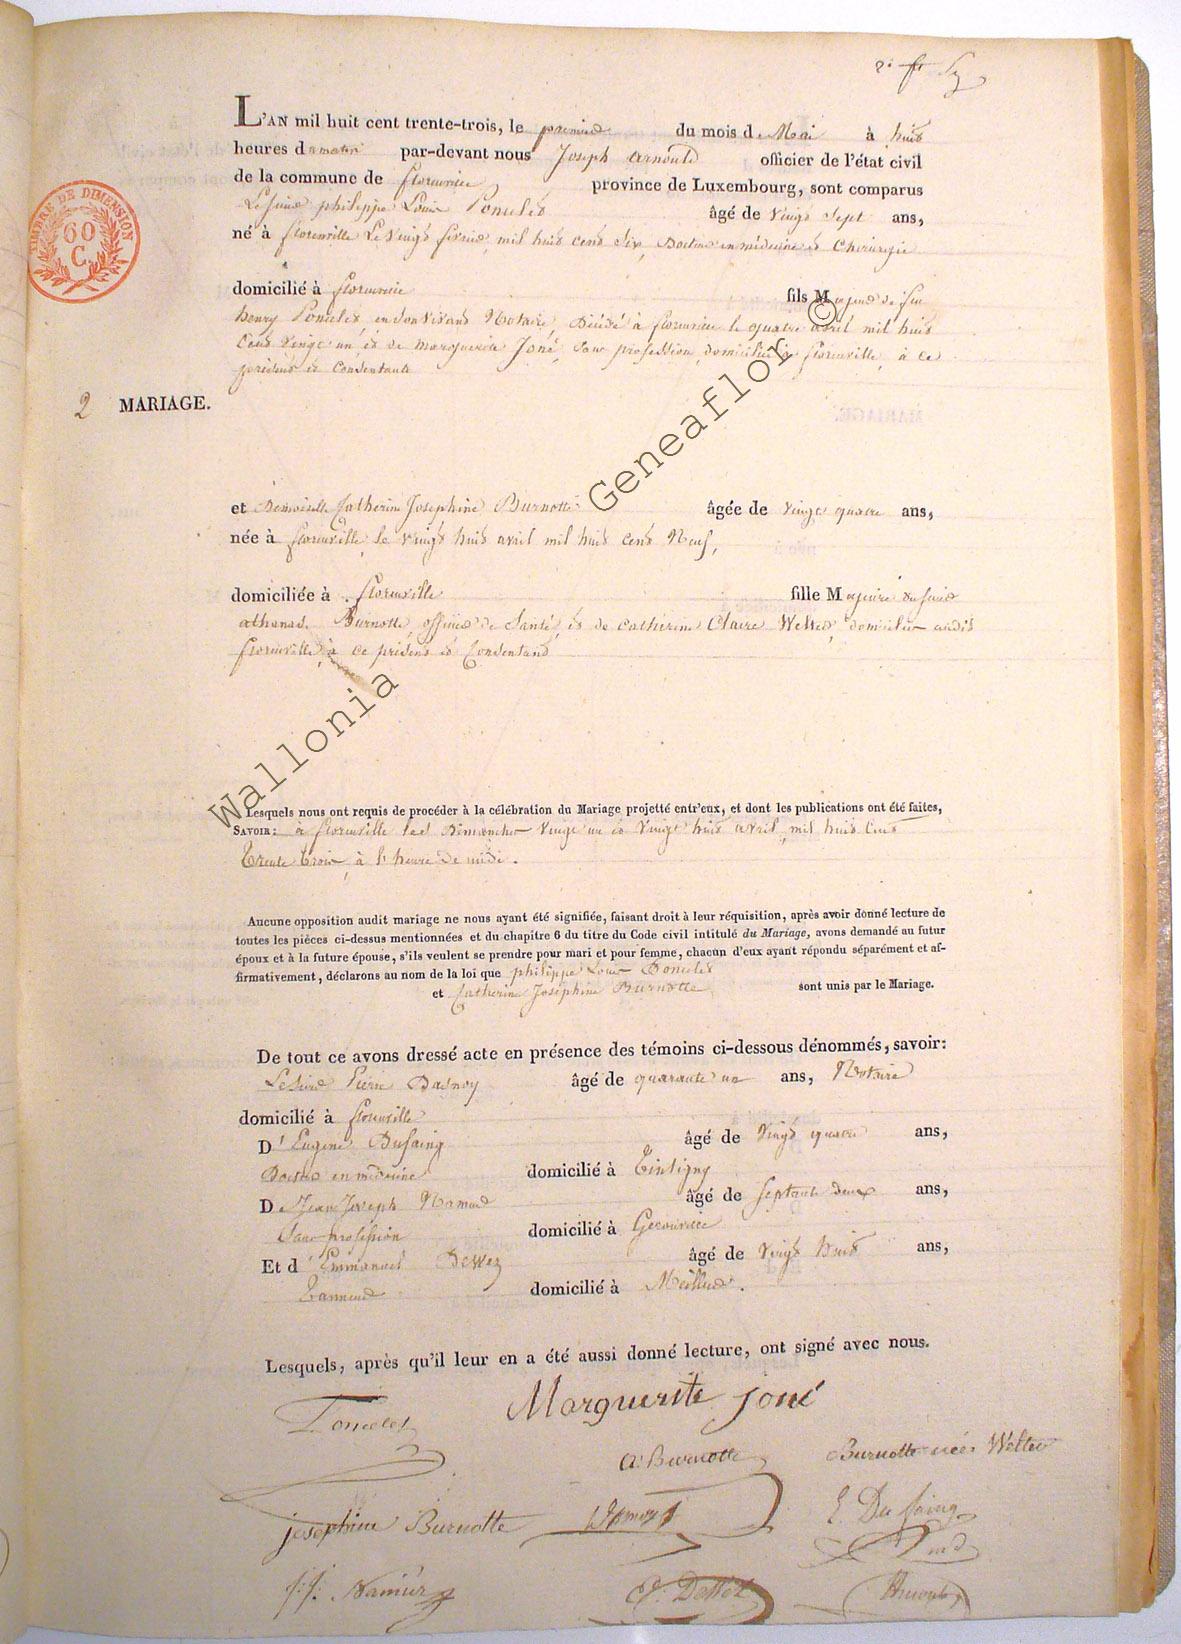 L'AN mil huit cent trente-trois, le premier du mois de Mai à huit
heures du matin par-devant nous Joseph Arnould officier de l'état civil
de la commune de florenville province de Luxembourg, sont comparus
Le sieur philippe Louis Poncelet âgé de vingt sept ans,
né à florenville Le vingt fevrier mil huit cent six, Docteur en médecine et Chirurgie
domicilié à florenville fils Majeur de feu
henry Poncelet, en son vivant Notaire, Décédé à florenville le quatre avril mil huit
Cent vingt un, et de marguerite Joné, Sans profession, domiciliée à florenville, à ce
présent et Consentante
2 MARIAGE.
et Demoiselle Catherine Josephine Burnotte âgée de vingt quatre ans,
née à florenville, le vingt huit avril mil huit cent Neuf,
domiciliée à florenville fille Majeure du sieur
athanas Burnotte, officier de Santé, et de catherine Claire Welter, domiciliés audit
florenville, à ce présent et Consentant
Lesquels nous ont requis de procéder à la célébration du Mariage projetté entr'eux, et dont les publications ont été faites,
SAVOIR: a florenville les Dimanches vingt un et vingt huit avril, mil huit cent
Trente trois, à l'heure de midi.
Aucune opposition audit mariage ne nous ayant été signifiée, faisant droit à leur réquisition, après avoir donné lecture de
toutes les pièces ci-dessus mentionnées et du chapitre 6 du titre du Code civil intitulé du Mariage, avons demandé au futur
époux et à la future épouse, s'ils veulent se prendre pour mari et pour femme, chacun d'eux ayant répondu séparément et af-
firmativement, déclarons au nom de la loi que philippe Louis Poncelet
et Catherine Josephine Burnotte sont unis par le Mariage.
De tout ce avons dressé acte en présence des témoins ci-dessous dénommés, savoir:
Le sieur Pierre Dasnoy âgé de quarante un ans, Notaire
domicilié à florenville
D'Eugène Dufaing âgé de vingt quatre ans,
Docteur en médecine domicilié à Tintigny
De Jean Joseph Namur âgé de septante deux ans,
Sans profession domicilié à Gerouville
Et d'Emmanuel Dewez âgé de vingt huit ans,
Tanneur domicilié à Meillier.
Lesquels, après qu'il leur en a été aussi donné lecture, ont signé avec nous.
Poncelet Marguerite Joné
A. Burnotte Burnotte née Welter
josephine Burnotte E. Dufaing
j: j: Namur Arnould
TIMBRE DE DIMENSION
60
C.
Wallonia Geneaflor ©